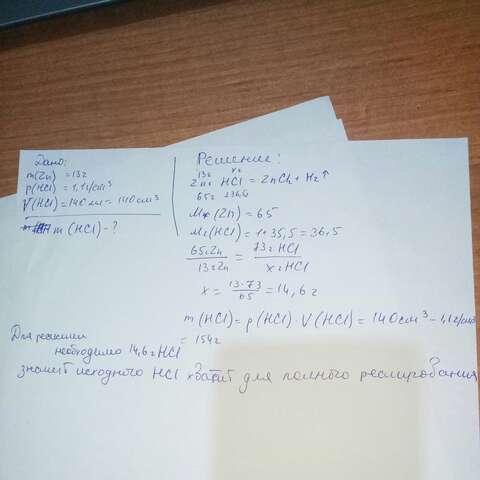 Дано:
m(Zn) = 13г
p(HCl) = 1,1г/cm³
V(HCl) = 140мл = 140см³
m(HCl) - ?
Решение:
13г хг
Zn + HCl = ZnCl₂ + H₂↑
65г 2·36,5
Mr(Zn) = 65
Mr(HCl) = 1+35,5 = 36,5
65гZn / 13гZn = 73г HCl / хгHCl
x = 13·73 / 65 = 14,6г
m(HCl) = p(HCl) · V(HCl) = 140см³ - 1,1г/см³
= 154г
Для реакции
необходимо 14,6г HCl
значит исходного HCl хватит для полного реагирования